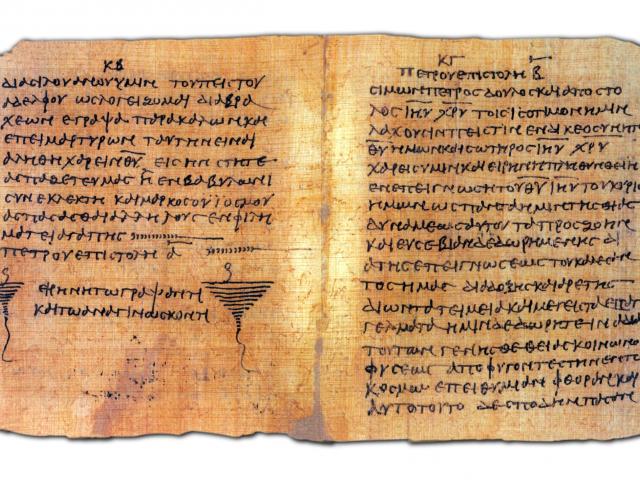 ΚΒ
διασιλουανουυμιν τουπιστου
αδελφου ωσλογειζομαι διαβρα
χεωνεγραψαπαρακαλωνκαι
επειμαρτυρωνταυτηνειναι
αληθηχαρεινθυ εισηνστητε
ασπαζετευμας η ενβαβυλωνι
συνεκλεκτη καιμαρκοσουϊοσμου
ασπασασθαιαλληλουσενφιλη
ματειαγαπης
πετρουεπιστολη α
ειρηνητωγραψαντι
καιτωαναγινωσκοντι
ΚΓ
πετρουεπιστολη β
σιμωνπετροσδουλοσκαιαποστο
λοσιηυ χρυ τοισισοτιμονημιν
λαχουσινπιστινενδικεοσυνη
θυημωνκαισωτηροσιηυ χρυ
χαρεισυμινκαιειρηνηπληθυνθειη
ενεπειγνωσητουθυ ιηυτουκυριου
ημωνωσπανταημιντησθειας
δυναμεωσαυτουταπροσζωην
καιευσεβιανδεδωρημενησ δι
ατησεπειγνωσεωστουκαλεσαν
τοσημασ διαδοξησκαιαρετης
διωντατειμειακαιμεγισταεπαγ
γελματαημινδεδωρητειναδια
τουτωνγενησθεθειασκοινωνοι
φυσεωσ αποφυγοντεστηνεντω
κοσμω επειθυμιαν φθορασ και
αυτοτουτο δεσπουδηνπασαν